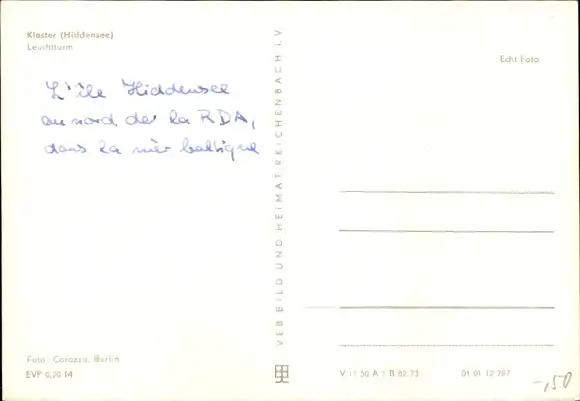 Kloster (Hiddensee)
Leuchtturm
L'île Hiddensee
au nord de la RDA,
dans la mer baltique
Echt Foto
VEB BILD UND HEIMAT REICHENBACH i. V.
Foto: Corazza, Berlin
EVP 0,20 M
V 11 50 A 1 B 82/73
01 01 12 287
-,50